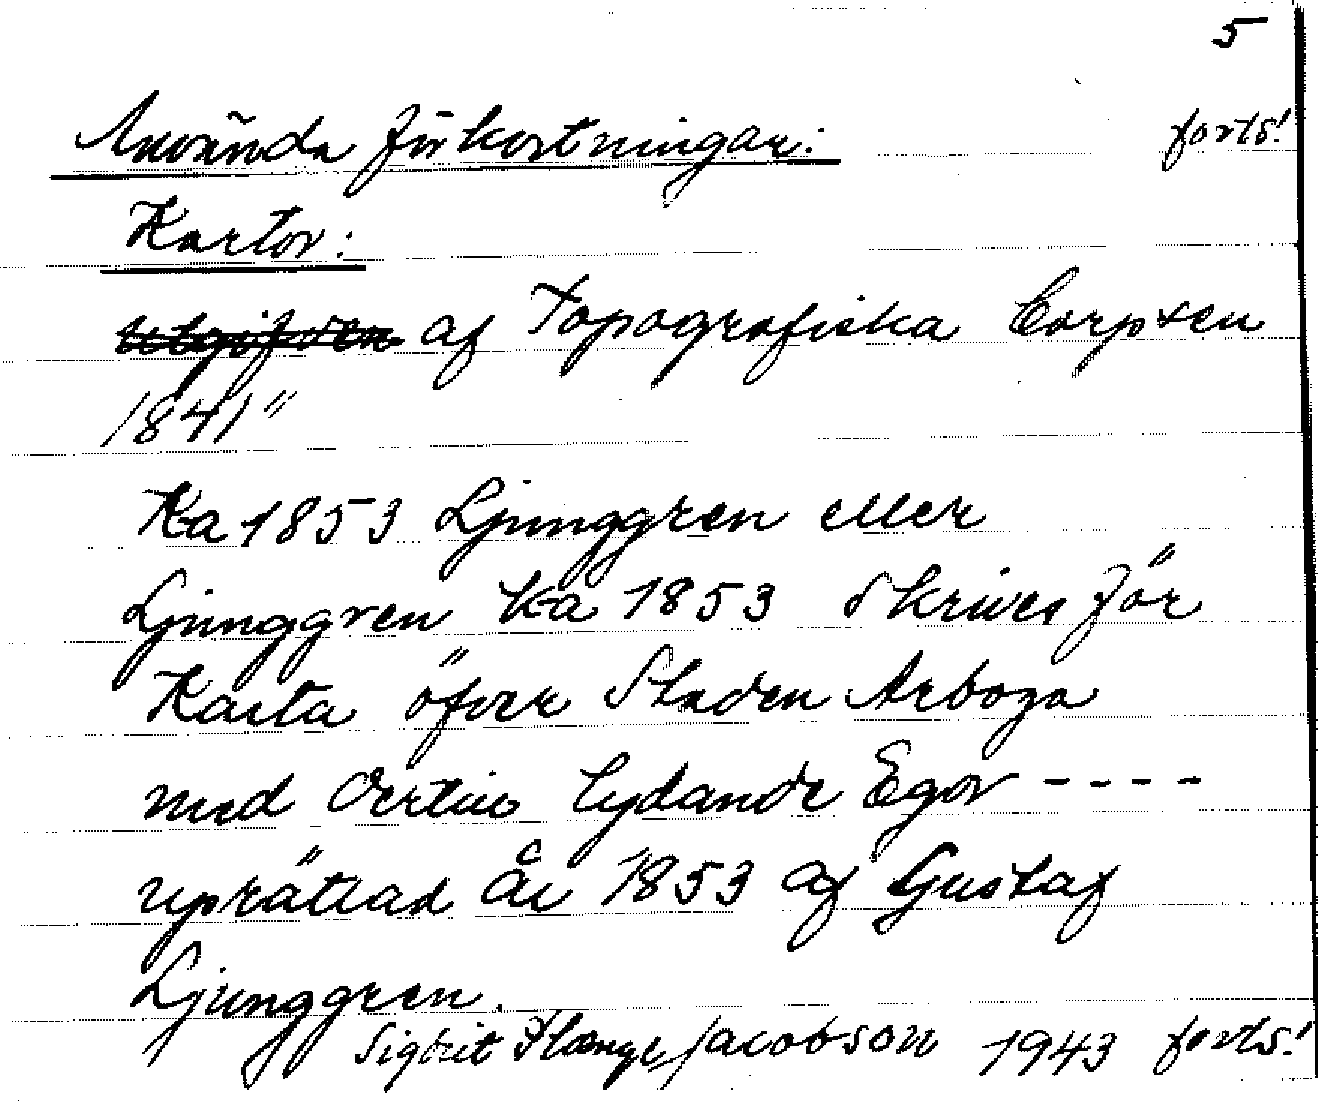 5
Använda förkortningar: forts!
Kartor:
utgifven af Topografiska Corpsen
1841"
Ka 1853 Ljunggren eller
Ljunggren Ka 1853 skrives för
Karta öfver Staden Arboga
med lydande Egor ----
upprättad år 1853 af Gustaf
Ljunggren.
Sigbrit Jacobson 1943 forts!